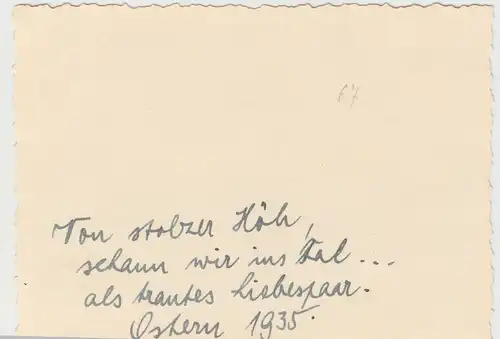 67
Von stolzer Höh,
schaun wir ins Tal...
als trautes Liebespaar.
Ostern 1935.